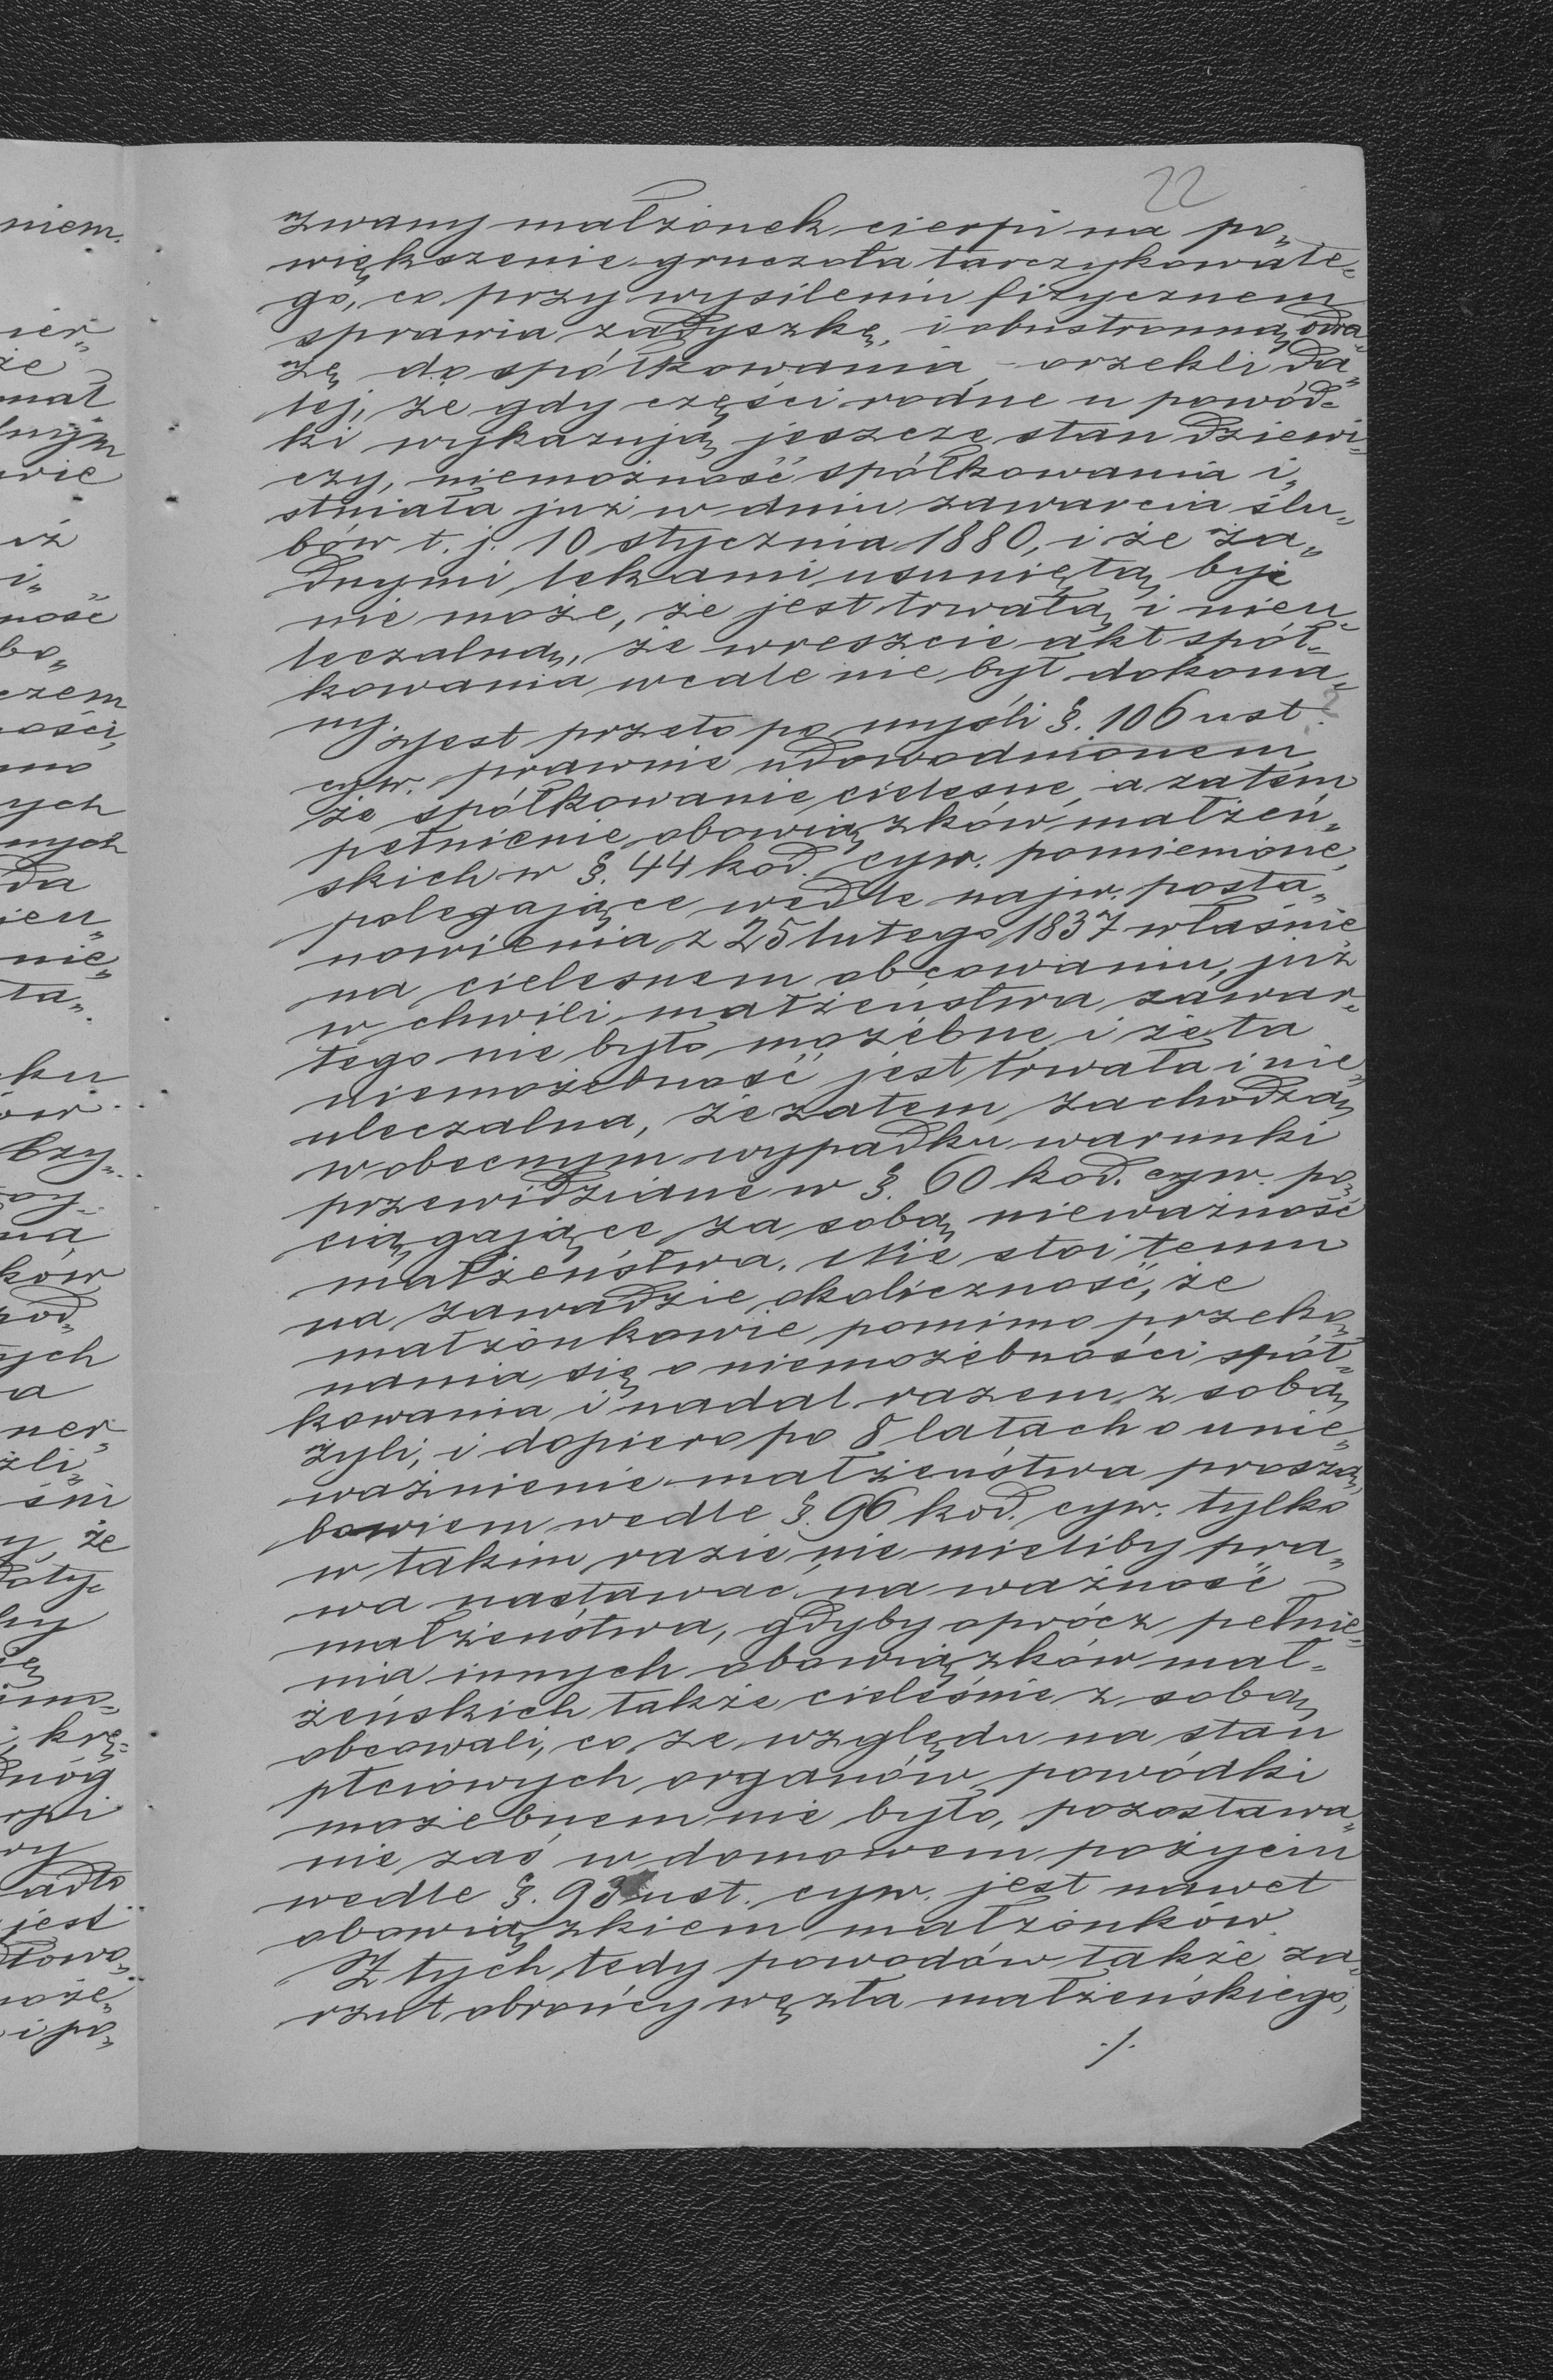 22
zwany małżonek cierpi na po„
większenie gruczoła tarczykowate„
go, co przy wysileniu fizycznem
sprawia zadyszkę, i obustronną odra„
zę do spółkowania – orzekli da„
lej, że gdy części rodne u powód„
ki wykazują jeszcze stan dziewi„
czy, niemożność spółkowania i„
stniała już w dniu zawarcia ślu„
bów t. j. 10 stycznia 1880, i że ża„
dnymi lekami usuniętą być
nie może, że jest trwałą i nieu„
leczalną, że wreszcie akt spół„
kowania wcale nie był dokona„
ny.
Jest przeto po myśli §. 106 ust.
cyw. prawnie udowodnionem,
że spółkowanie cielesne, a zatem
pełnienie obowiązków małżeń„
skich w §. 44 kod. cyw. pomienione,
polegające wedle najw. posta„
nowienia z 25 lutego 1837 właśnie
na cielesnem obcowaniu, już
w chwili małżeństwa zawar„
tego nie było możebne i że ta
niemożebność jest trwała i nie„
uleczalna, że zatem zachodzą
w obecnym wypadku warunki
przewidziane w §. 60 kod. cyw. po„
ciągające za sobą nieważność
małżeństwa. Nie stoi temu
na zawadzie okoliczność, że
małżonkowie pomimo przeko„
nania się o niemożebności spół„
kowania i nadal razem z sobą
żyli, i dopiero po 8 latach o unie„
ważnienie małżeństwa proszą,
bowiem wedle §. 96 kod. cyw. tylko
w takim razie nie mieliby pra„
wa nastawać na ważność
małżeństwa, gdyby oprócz pełnie„
nia innych obowiązków mał„
żeńskich także cieleśnie z sobą
obcowali, co ze względu na stan
płciowych organów powódki
możebnem nie było, pozostawa„
nie zaś w domowem pożyciu
wedle §. 93 ust. cyw. jest nawet
obowiązkiem małżonków.
Z tych tedy powodów także za„
rzut obrońcy węzła małżeńskiego,
./.